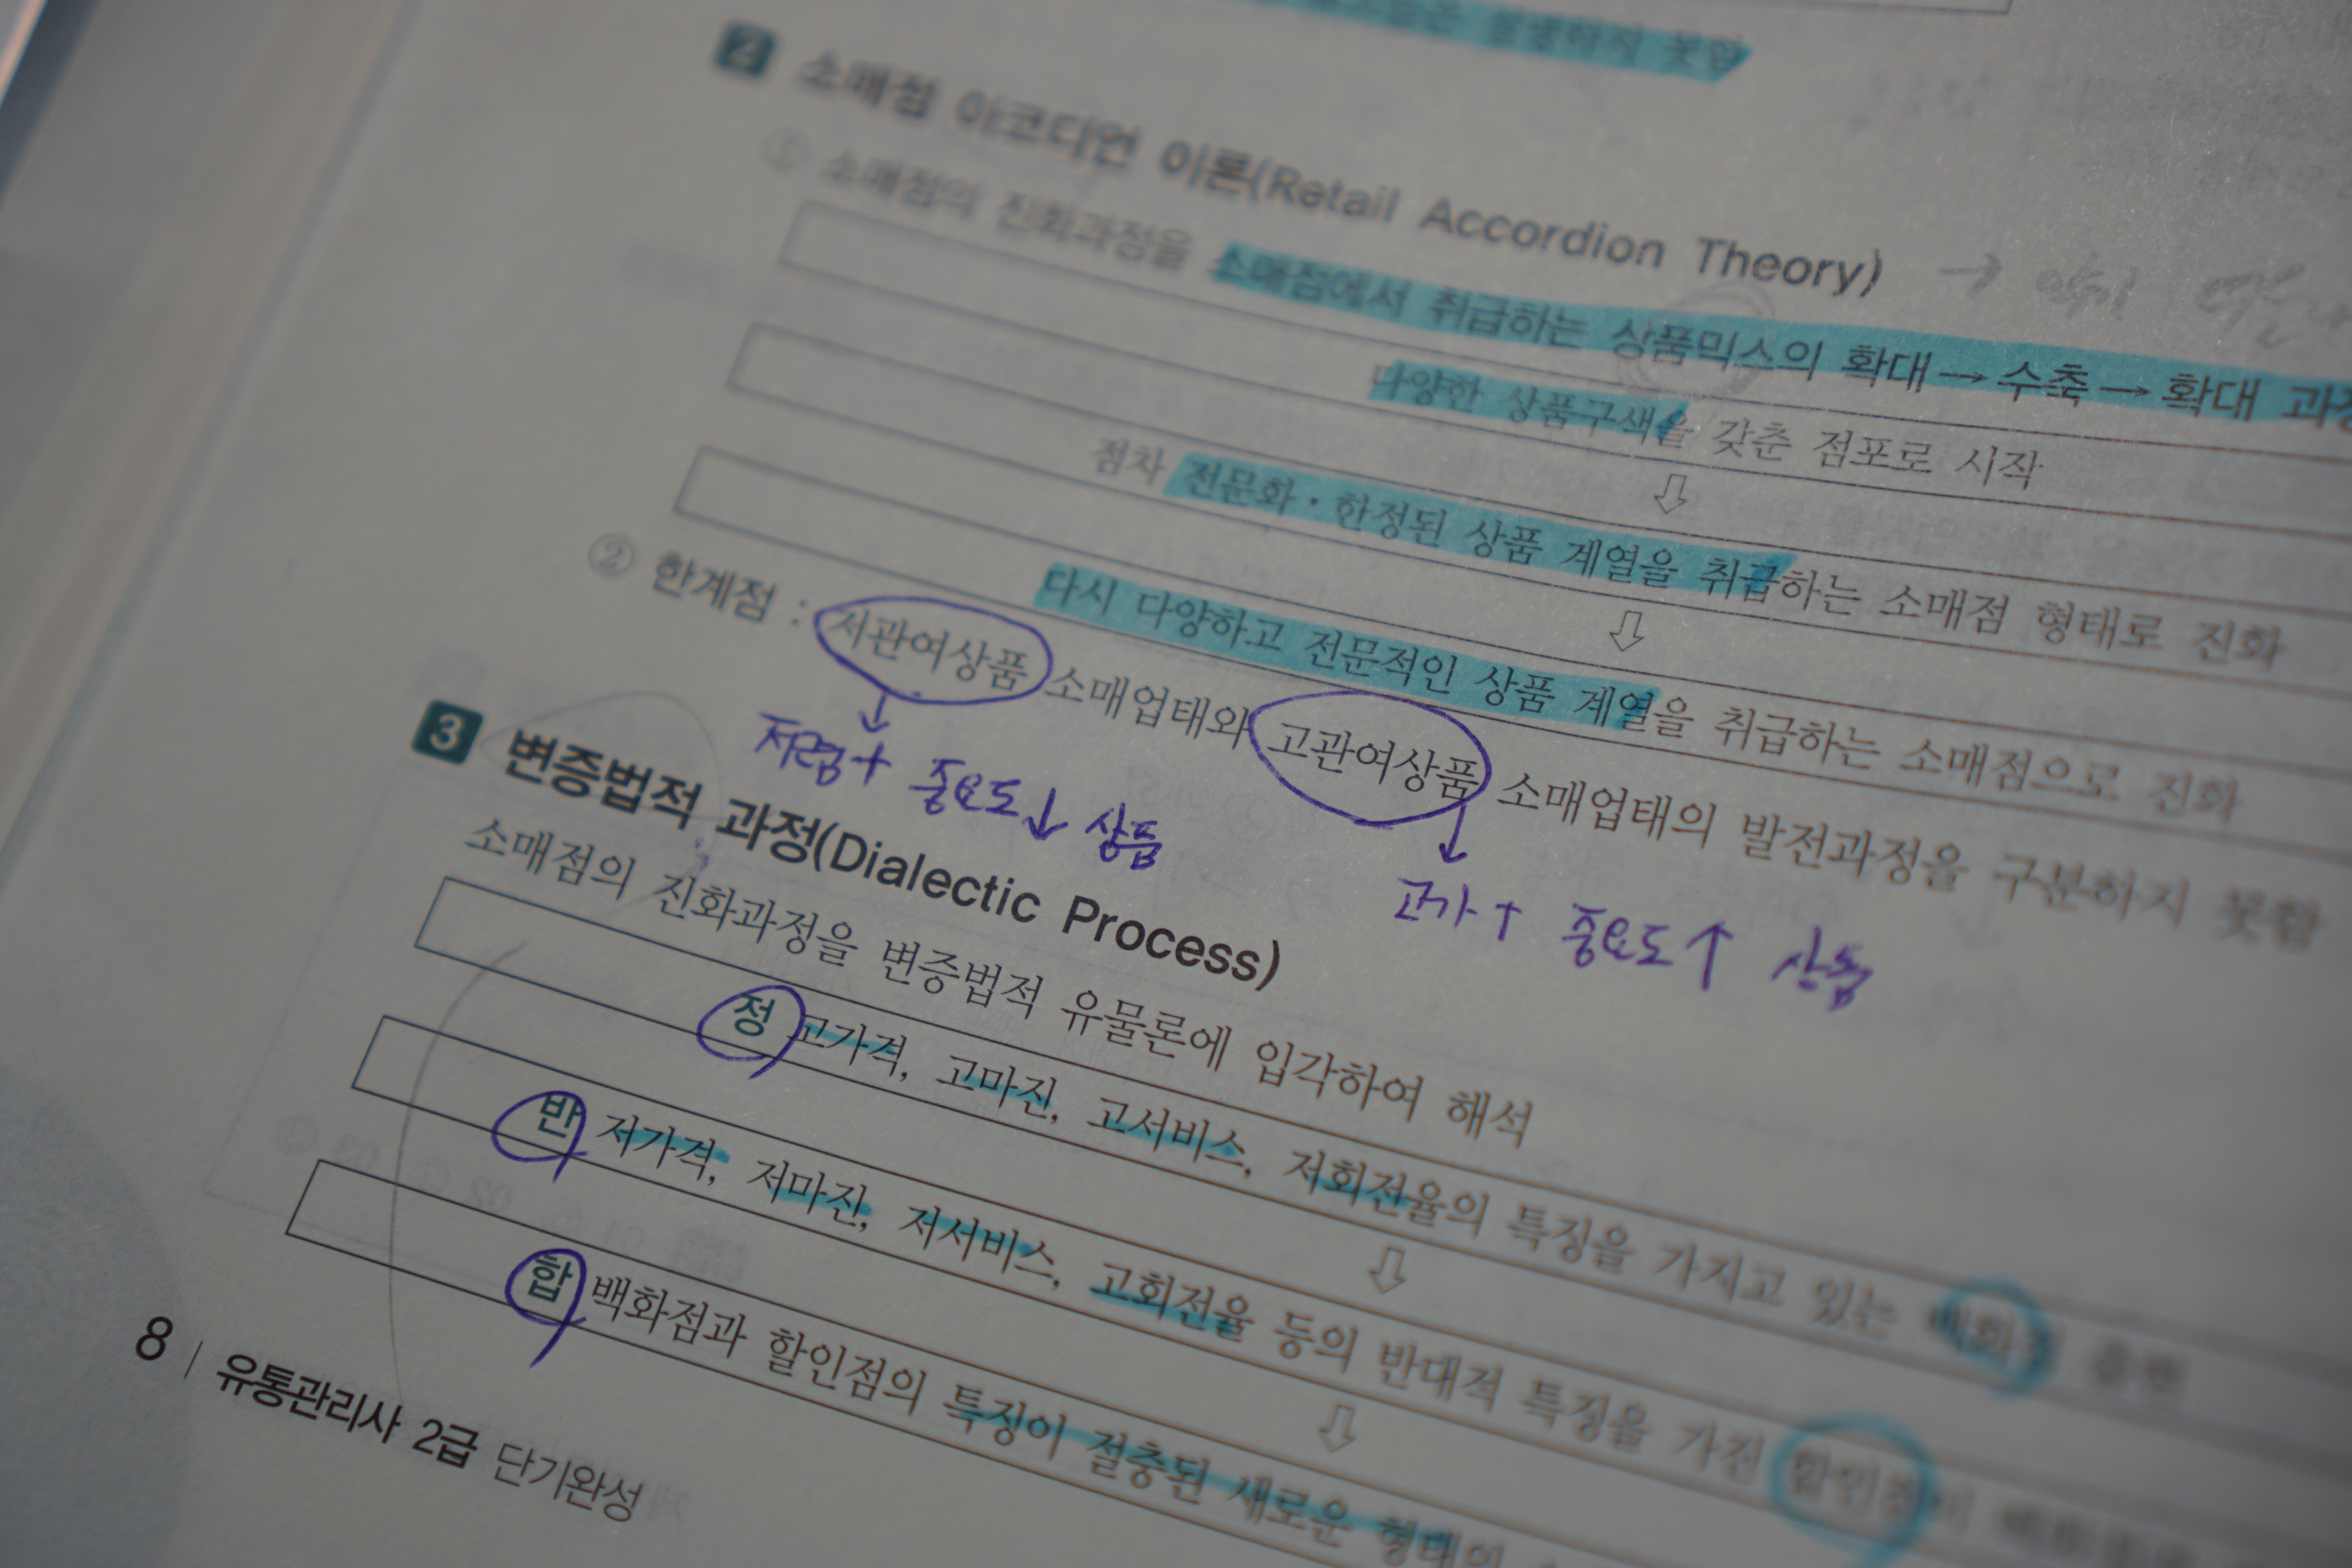 발생하지 못함
2 소매점 아코디언 이론(Retail Accordion Theory) → 악기
① 소매점의 진화과정을 소매점에서 취급하는 상품믹스의 확대 → 수축 → 확대 과정
다양한 상품구색을 갖춘 점포로 시작
⇩
점차 전문화·한정된 상품 계열을 취급하는 소매점 형태로 진화
⇩
다시 다양하고 전문적인 상품 계열을 취급하는 소매점으로 진화
② 한계점 : 저관여상품 소매업태와 고관여상품 소매업태의 발전과정을 구분하지 못함
↓ 저렴 + 중요도↓ 상품
↓ 고가 + 중요도↑ 상품
3 변증법적 과정(Dialectic Process)
소매점의 진화과정을 변증법적 유물론에 입각하여 해석
정 고가격, 고마진, 고서비스, 저회전율의 특징을 가지고 있는 백화점
⇩
반 저가격, 저마진, 저서비스, 고회전율 등의 반대적 특징을 가진 할인점이
⇩
합 백화점과 할인점의 특징이 절충된 새로운 형태의
8 | 유통관리사 2급 단기완성